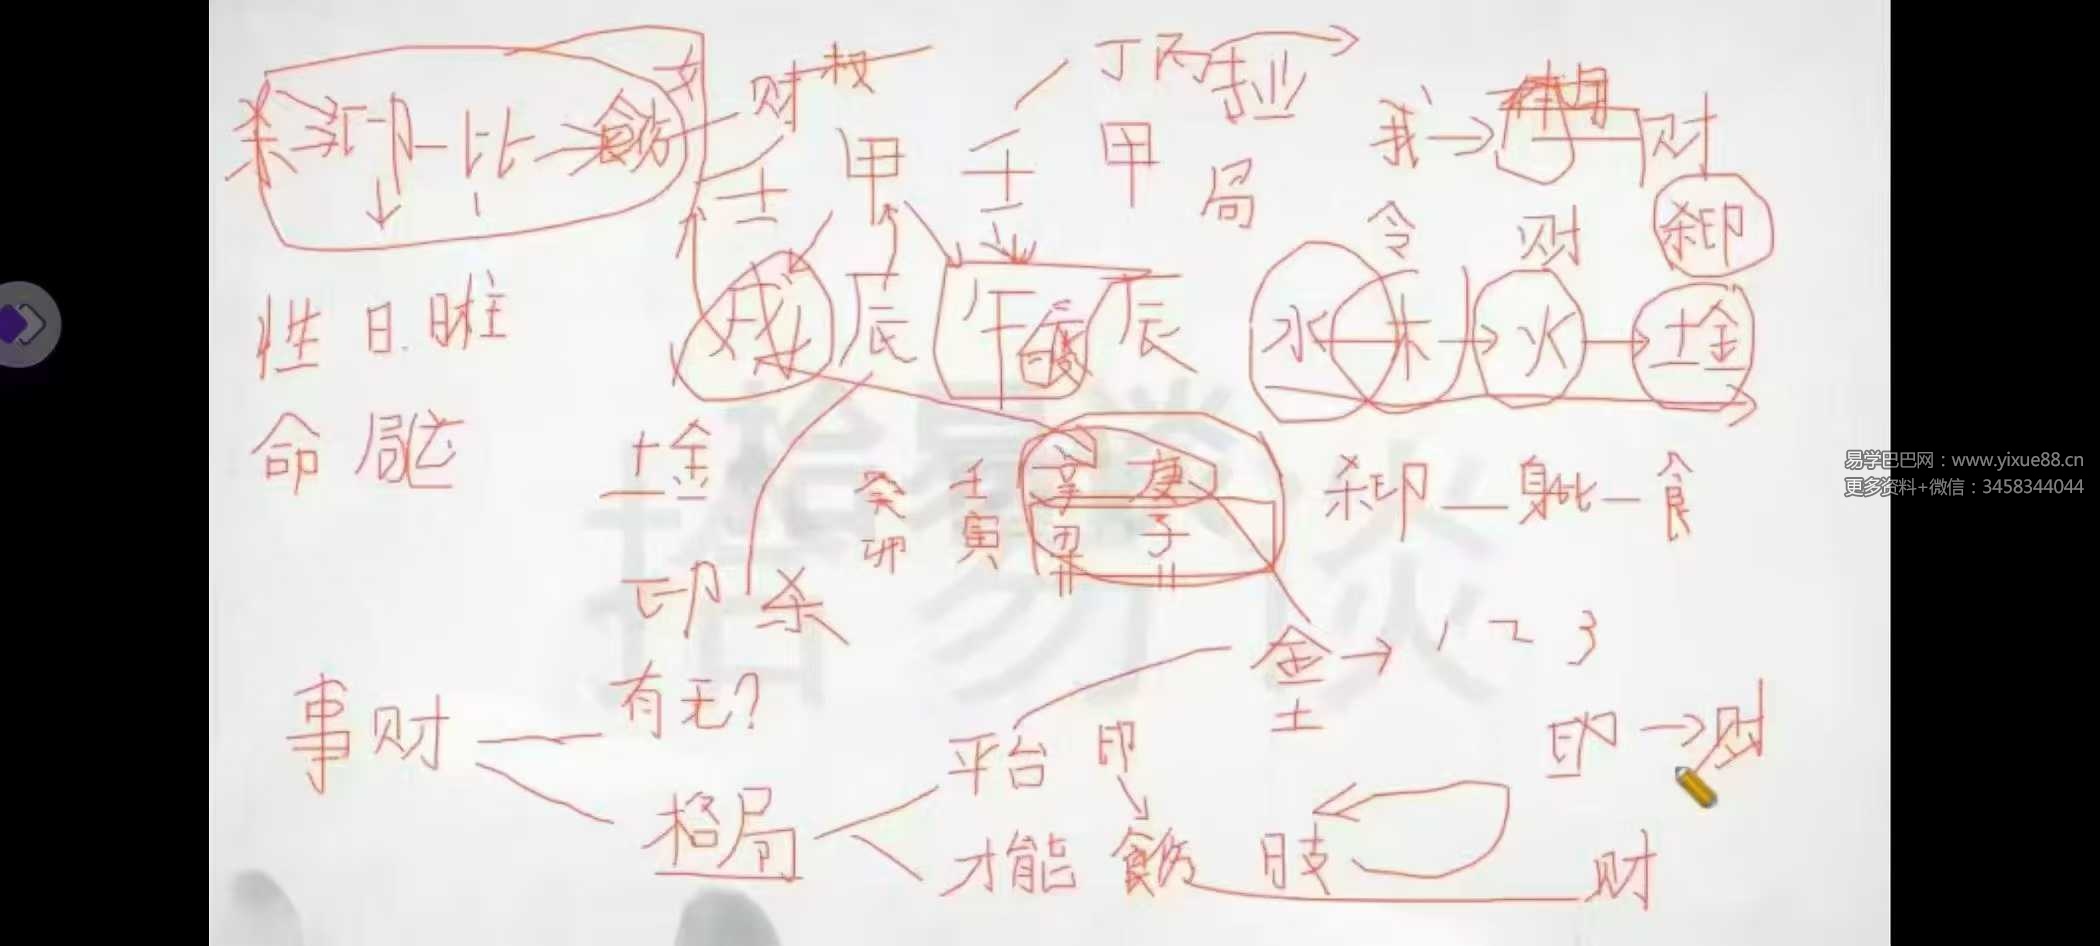 杀 印 比 食伤 财 权 丁丙 业
壬 甲 壬 甲 局
戌 辰 午 辰
我 财
令 财 杀印
水 木 火 土金
性 日.时柱
命 局
土金
癸卯 壬寅 辛丑 庚子
杀印 — 身比 — 食
印 杀
金 土 1 2 3
事 财 有无?
格局 平台 印
才能 食伤 日支 财
印 财
拾易谈
易学巴巴网：www.yixue88.cn
更多资料+微信：3458344044